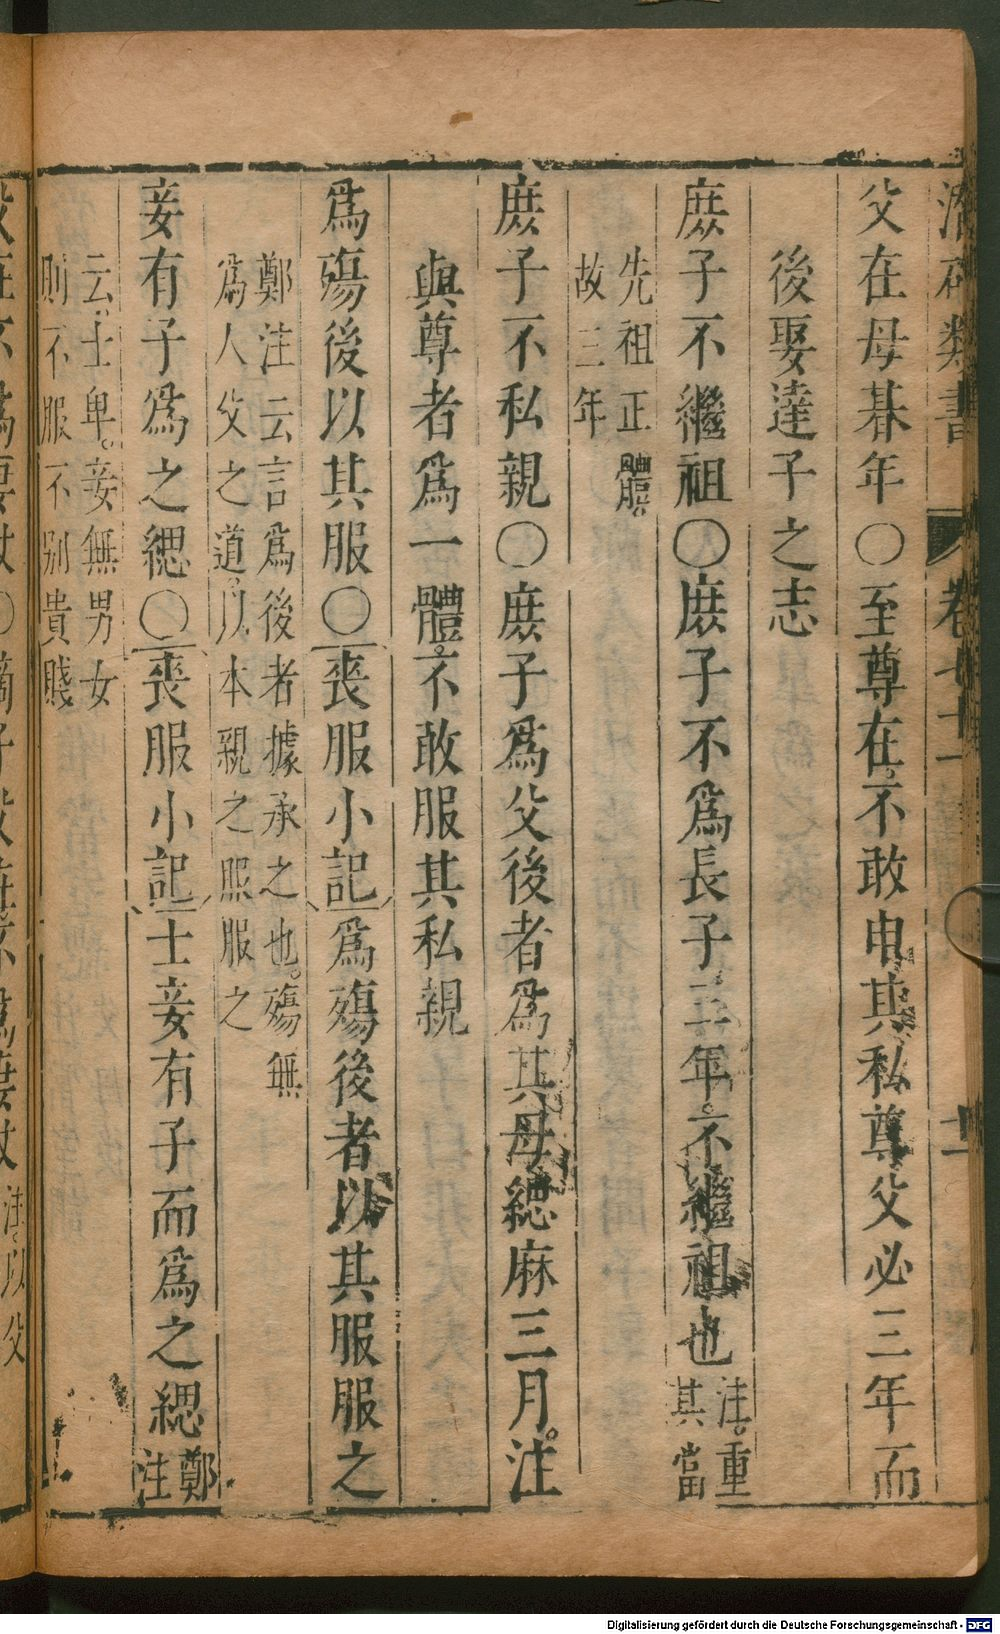 潛确類書 卷七十一 十一
父在母朞年〇至尊在不敢申其私尊父必三年而
後娶達子之志
庶子不繼祖〇庶子不爲長子三年不繼祖也注。重其當
先祖正體。
故三年
庶子不私親〇庶子爲父後者爲其母緦麻三月。注
與尊者爲一體。不敢服其私親
爲殤後以其服〇喪服小記爲殤後者以其服服之
鄭注云言爲後者據承之也。殤無
爲人父之道。以本親之服服之
妾有子爲之緦〇喪服小記士妾有子而爲之緦鄭注
云士卑。妾無男女
則不服不别貴賤